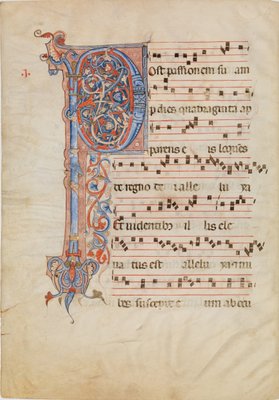 Post passionem su am
p dies quadraginta ap
parens e is loq̄ns
de regno de i alle lu ya
Et uidentib; il lis ele
ua tus est allelu ya
bes suscepit e um ab ocu